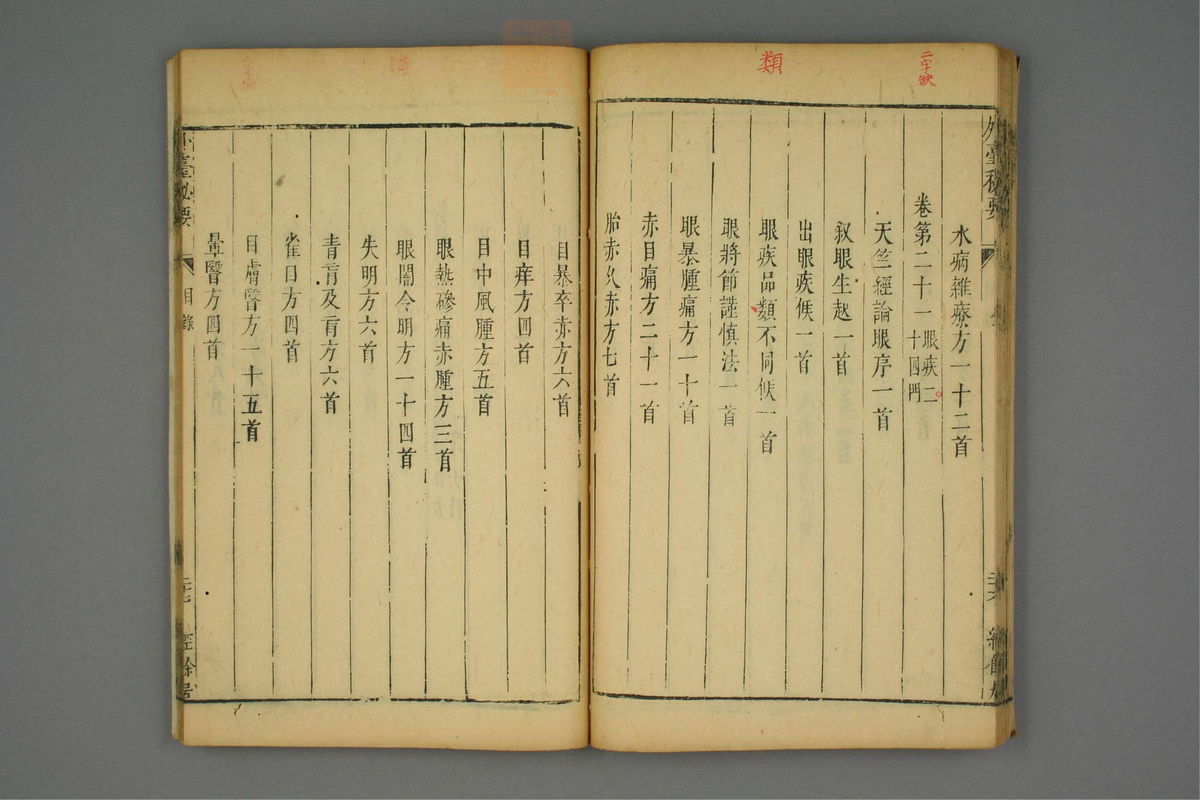 二字缺
類
外臺秘要
水病雜療方一十二首
卷第二十一 眼疾二十四門
天竺經論眼序一首
敘眼生起一首
出眼疾候一首
眼疾品類不同候一首
眼將節謹慎法一首
眼暴腫痛方一十首
赤目痛方二十一首
胎赤久赤方七首
目暴卒赤方六首
目痒方四首
目中風腫方五首
眼熱磣痛赤腫方三首
眼闇令明方一十四首
失明方六首
青盲及盲方六首
雀目方四首
目膚翳方一十五首
暈翳方四首
外臺秘要
目錄
經餘居